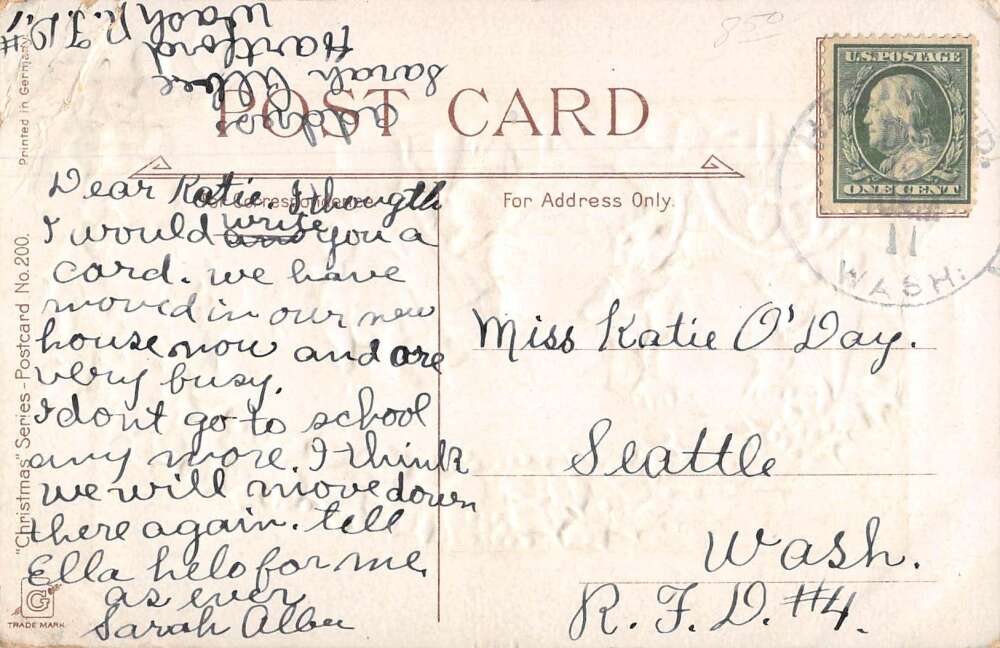 POST CARD
For Correspondence
For Address Only.
U.S. POSTAGE
ONE CENT
11
WASH.
Dear Katie I thougth
I would and write you a
card. we have
moved in our new
house now and are
very busy.
I dont go to school
any more. I think
we will move down
there again. tell
Ella helo for me.
as ever
Sarah Albee
Miss Katie O'Day.
Seattle
Wash.
R. F. D. #4.
addres
Sarah Albee
Hartford
Wash R. F. D. #1
850
Printed in Germany
"Christmas" Series - Postcard No. 200.
G
TRADE MARK